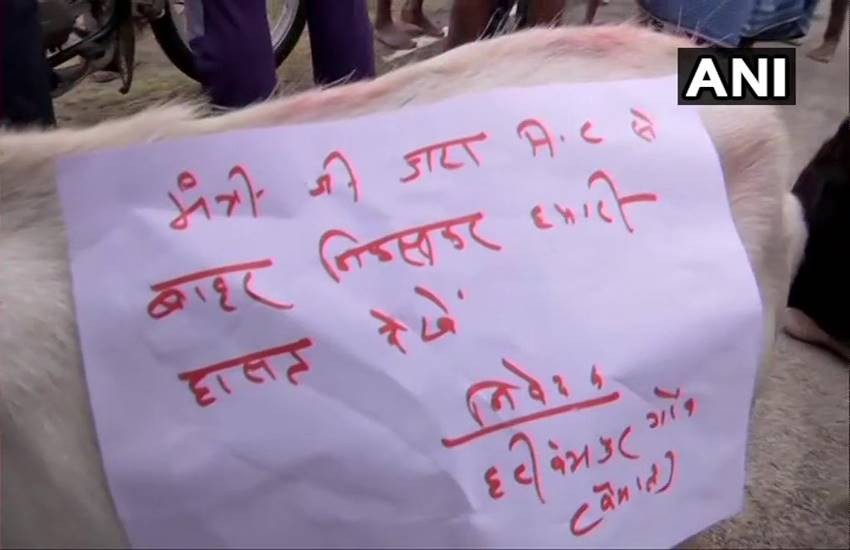 ANI
मंत्री जी जरा मे.ट से
बाहर निकलकर हमारी
हालत देखें
निवेदक
हरीवंशपुर गाँव